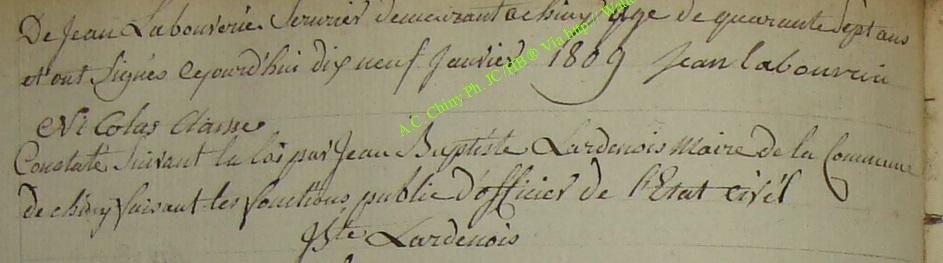 De Jean Labouverie Serurier demeurant a chiny age de quarante Sept ans
et ont Signés cejourd'hui dix neuf Janvier 1809 Jean labouverie
Nicolas
Constaté Suivant la loi par Jean Baptiste Lardenois Maire de la Commune
de chiny faisant les fonctions public d'officier de l'Etat civil
JBte Lardenois
A.C. Chiny Ph. JC/HB® Via http://